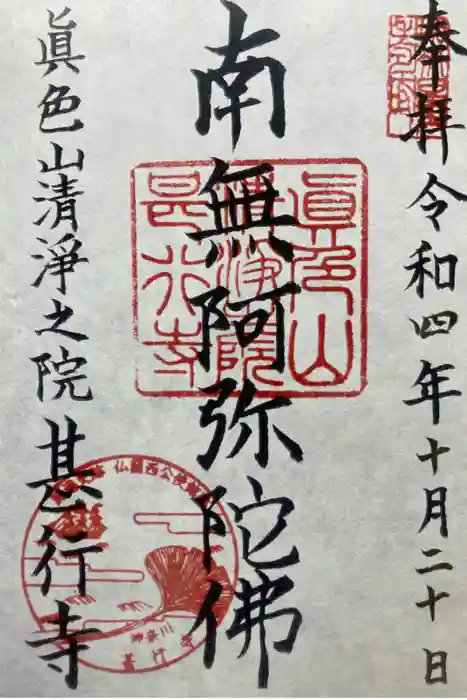 奉拝 令和四年十月二十日
南無阿弥陀佛
眞色山清淨之院 甚行寺
眞色山
清浄院
甚行寺
神奈川
甚行寺